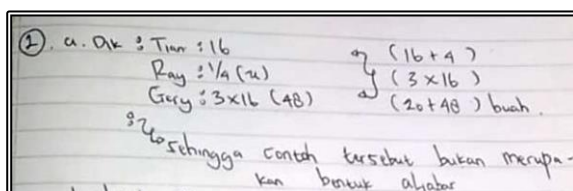 1. a. Dik : Tian : 16 (16+4)
Ray : 1/4 (4) (3×16)
Gery : 3×16 (48) (20+48) buah.
sehingga contoh tersebut bukan merupa-
kan bentuk aljabar